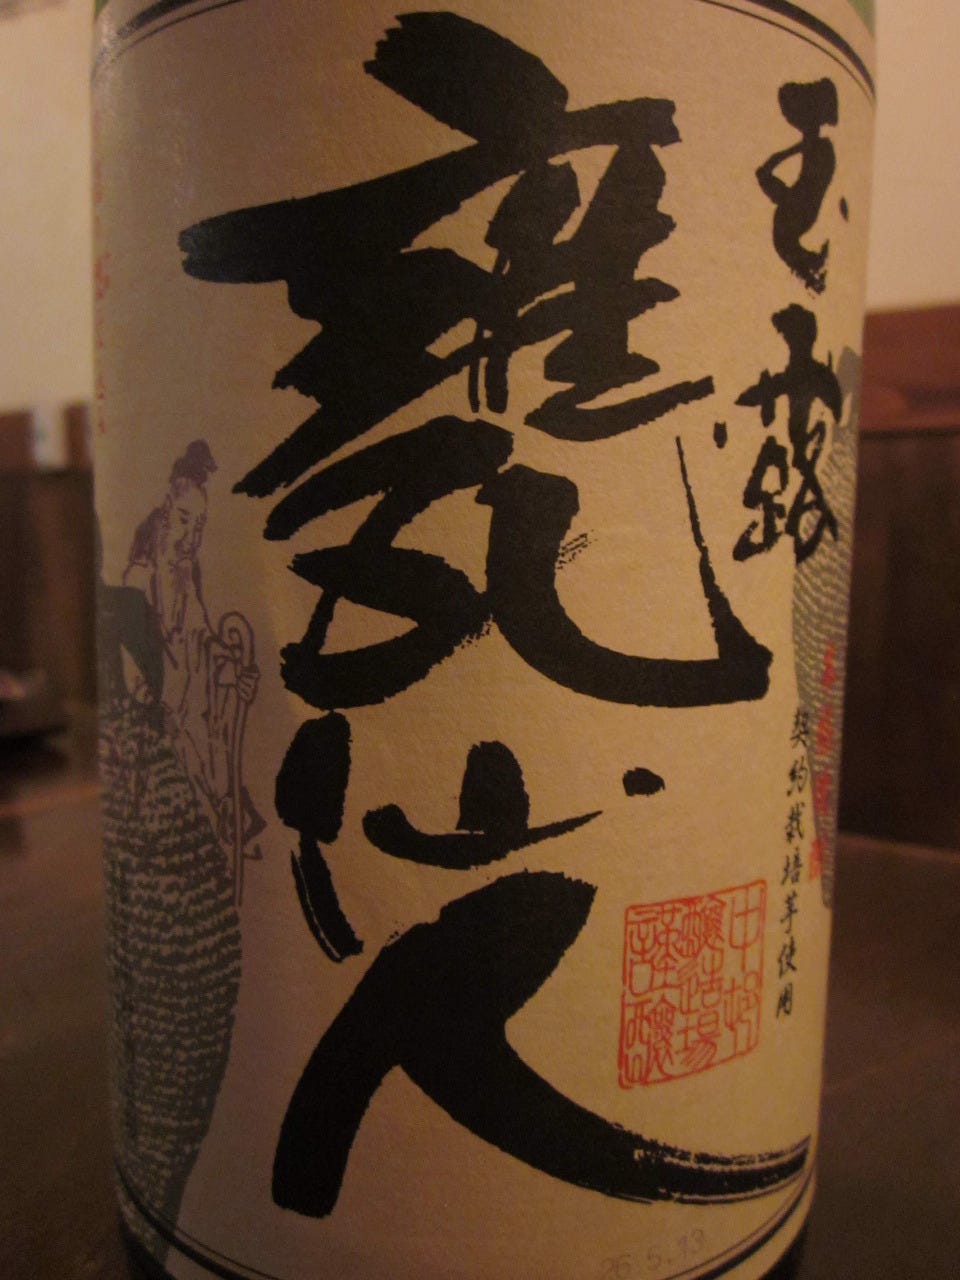 玉露
甕仙人
契約栽培芋使用
中村
醸造場
謹醸
26.5.13